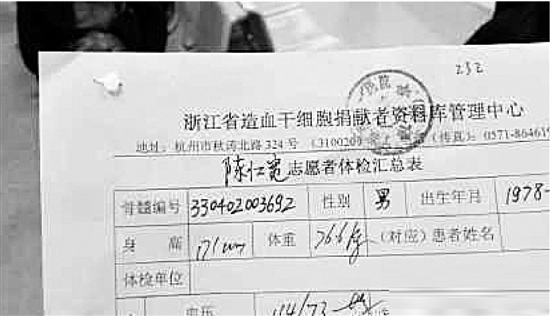 232
浙江省造血干细胞捐献者资料库管理中心
地址：杭州市秋涛北路324号（310020）（传真）：0571-864619
陈仁 志愿者体检汇总表
骨髓编号 330402003692 性别 男 出生年月 1978-
身高 171cm 体重 76.6kg （对应）患者姓名
体检单位
血压 114/73